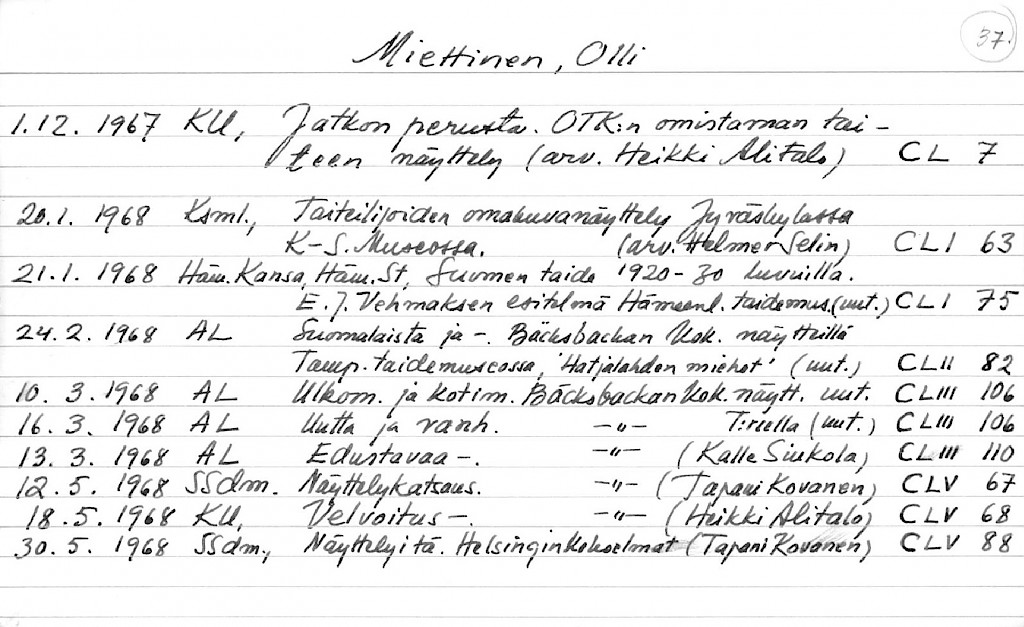 37.
Miettinen, Olli
1.12. 1967 KU, Jatkon perusta. OTK:n omistaman tai-
teen näyttely (arv. Heikki Alitalo) CL 7
20.1. 1968 Ksml., Taiteilijoiden omakuvanäyttely Jyväskylässä
K-S. Museossa. (arv. Helmer Selin) CLI 63
21.1. 1968 Häm. Kansa, Häm. St, Suomen taide 1920-30 luvuilla.
E.J. Vehmaksen esitelmä Hämeenl. taidemus. (uut.) CLI 75
24.2. 1968 AL Suomalaista ja -. Bäcksbackan kok. näytteillä
Tamp. taidemuseossa, 'Hatjalahden miehet' (uut.) CLII 82
10. 3. 1968 AL Ulkom. ja kotim. Bäcksbackan kok. näytt. uut. CLIII 106
16. 3. 1968 AL Uutta ja vanh. -"- T:reella (uut.) CLIII 106
13. 3. 1968 AL Edustavaa -. -"- (Kalle Siukola) CLIII 110
12. 5. 1968 SSdm. Näyttelykatsaus. -"- (Tapani Kovanen) CLV 67
18. 5. 1968 KU, Velvoitus -. -"- (Heikki Alitalo) CLV 68
30. 5. 1968 SSdm., Näyttelyitä. Helsingin kokoelmat (Tapani Kovanen) CLV 88